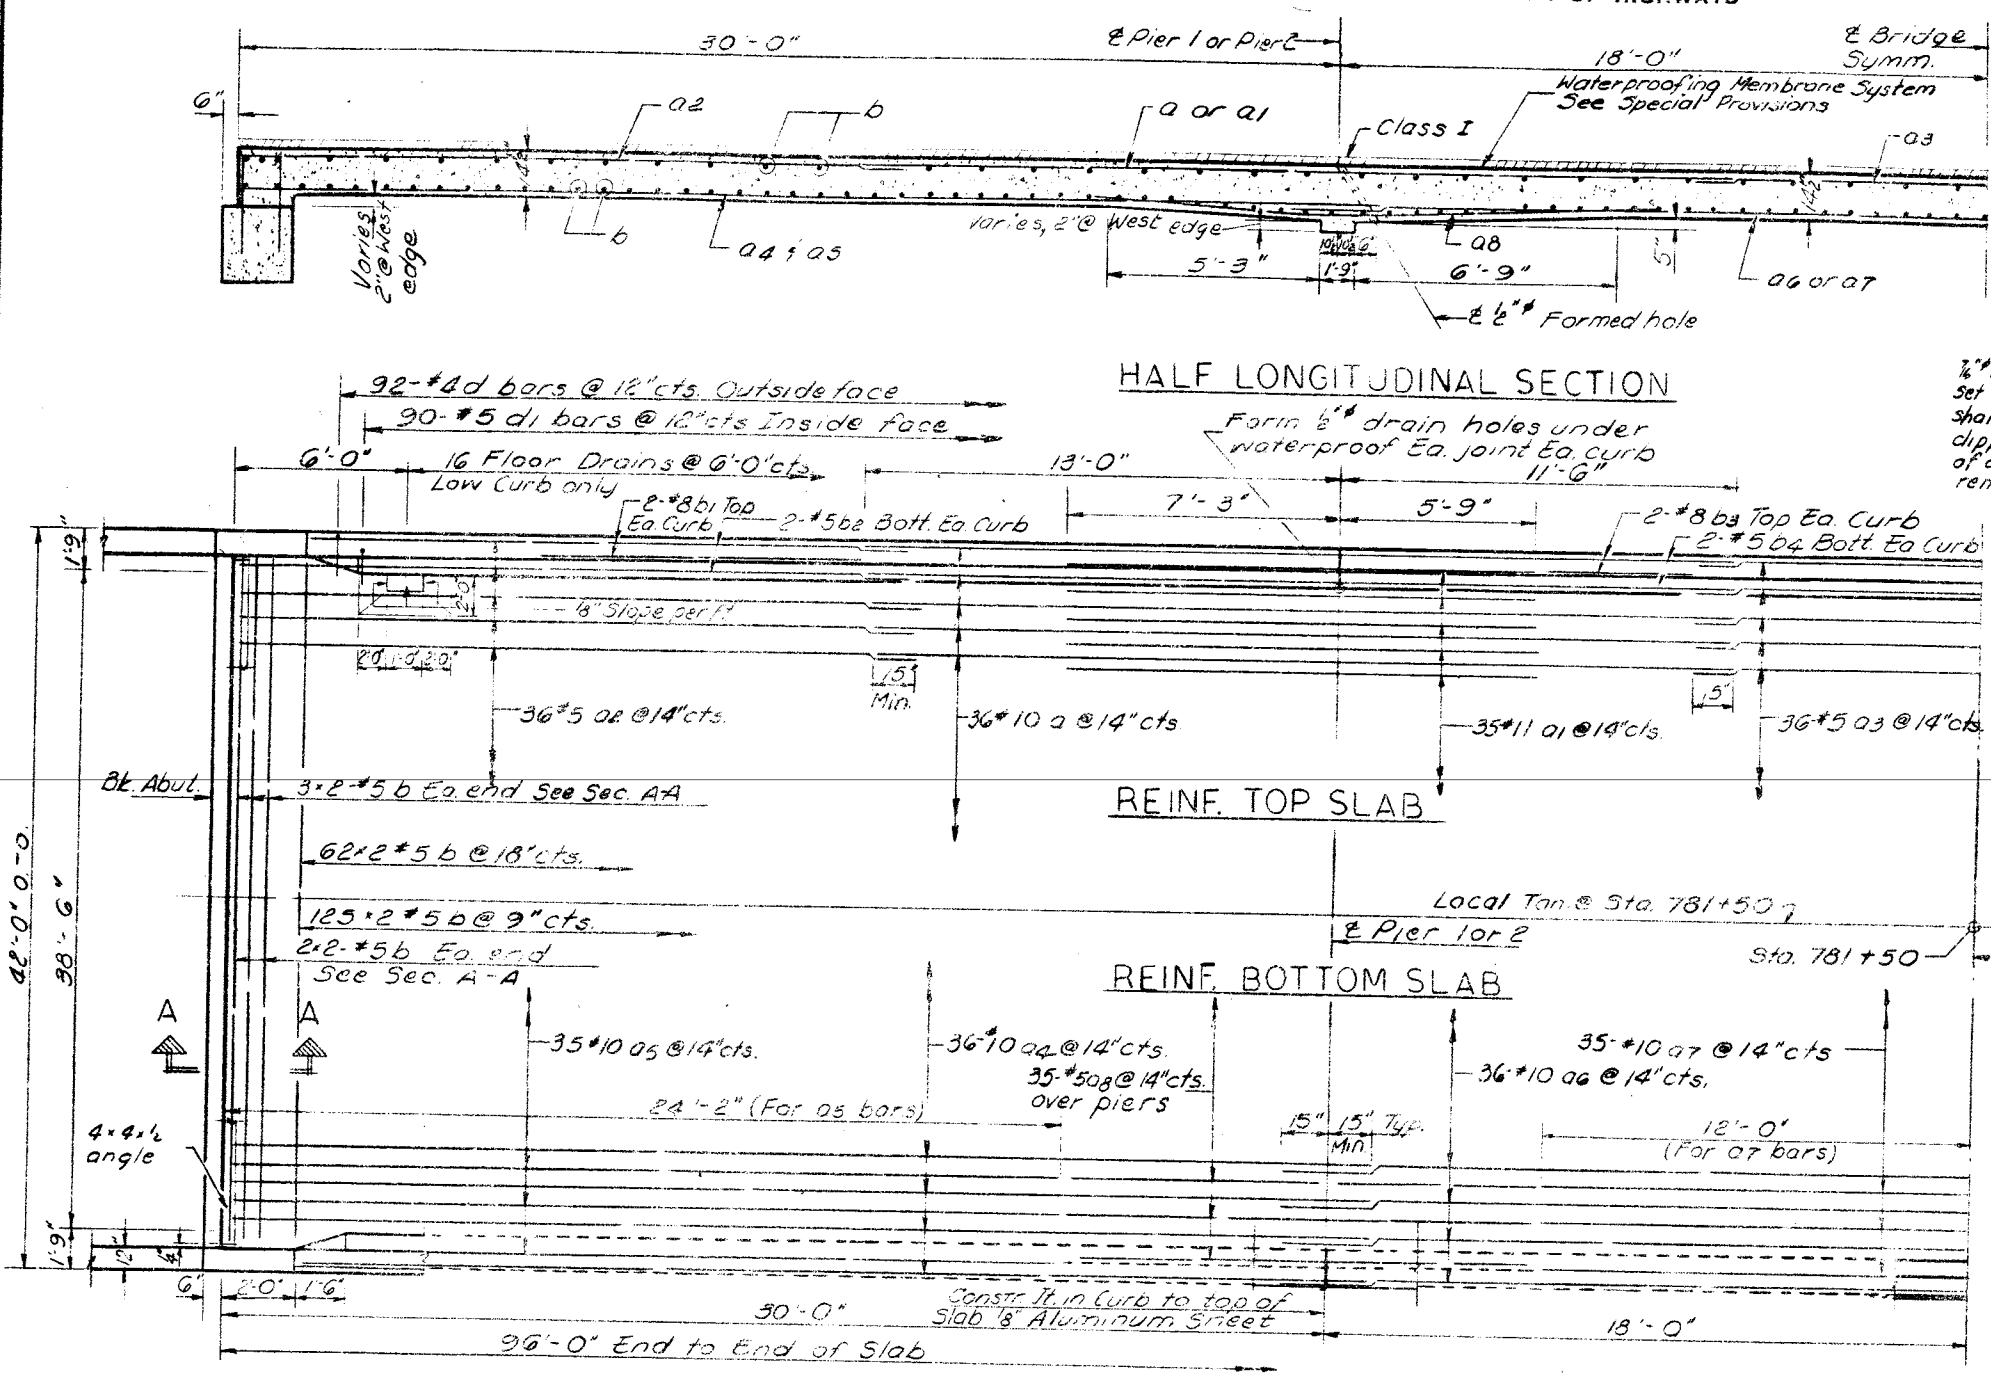 30'-0"
℄ Pier 1 or Pier 2
18'-0"
℄ Bridge
Symm.
6"
a2
b
a or a1
Class I
Waterproofing Membrane System
See Special Provisions
a3
Varies
2"@ West
edge
b
a4 & a5
Varies, 2"@ West edge
5'-3"
1'-9"
6'-9"
a8
5"
a6 or a7
℄ ½"φ Formed hole
HALF LONGITUDINAL SECTION
92-#4 d bars @ 12"cts. Outside face
90-#5 d1 bars @ 12"cts Inside face
Form ½"φ drain holes under
waterproof Ea. joint Ea. curb
set
6'-0"
16 Floor Drains @ 6'-0"cts.
Low Curb only
13'-0"
11'-6"
7'-3"
5'-9"
2-#8 b1 Top
Ea. Curb
2-#5 b2 Bott. Ea. Curb
2-#8 b3 Top Ea. Curb
2-#5 b4 Bott. Ea Curb
1'-9"
2'-0"
⅛" Slope per Ft.
2'-0" 1'-0" 2'-0"
15"
Min.
15"
36#5 a2 @14"cts.
36#10 a @14"cts.
35#11 a1 @14"cts.
36#5 a3 @14"cts.
Bk. Abut.
3×2-#5 b Ea. end See Sec. A-A
REINF. TOP SLAB
62×2 #5 b @ 18"cts.
42'-0" O.-O.
38'-6"
125×2 #5 b @ 9"cts.
2×2-#5 b Ea. end
See Sec. A-A
Local Tan. @ Sta. 781+50
℄ Pier 1 or 2
Sta. 781+50
REINF. BOTTOM SLAB
A
A
35#10 a5 @14"cts.
36-#10 a4 @14"cts.
35-#5 a8 @14"cts.
over piers
35-#10 a7 @14"cts
36-#10 a6 @14"cts.
24'-2" (For a5 bars)
15" 15" Typ.
Min.
12'-0"
(For a7 bars)
4×4×½
angle
1'-9"
12"
4"
6"
2'-0"
1'-6"
30'-0"
Constr. Jt. in Curb to top of
Slab ⅛" Aluminum Sheet
18'-0"
96'-0" End to End of Slab